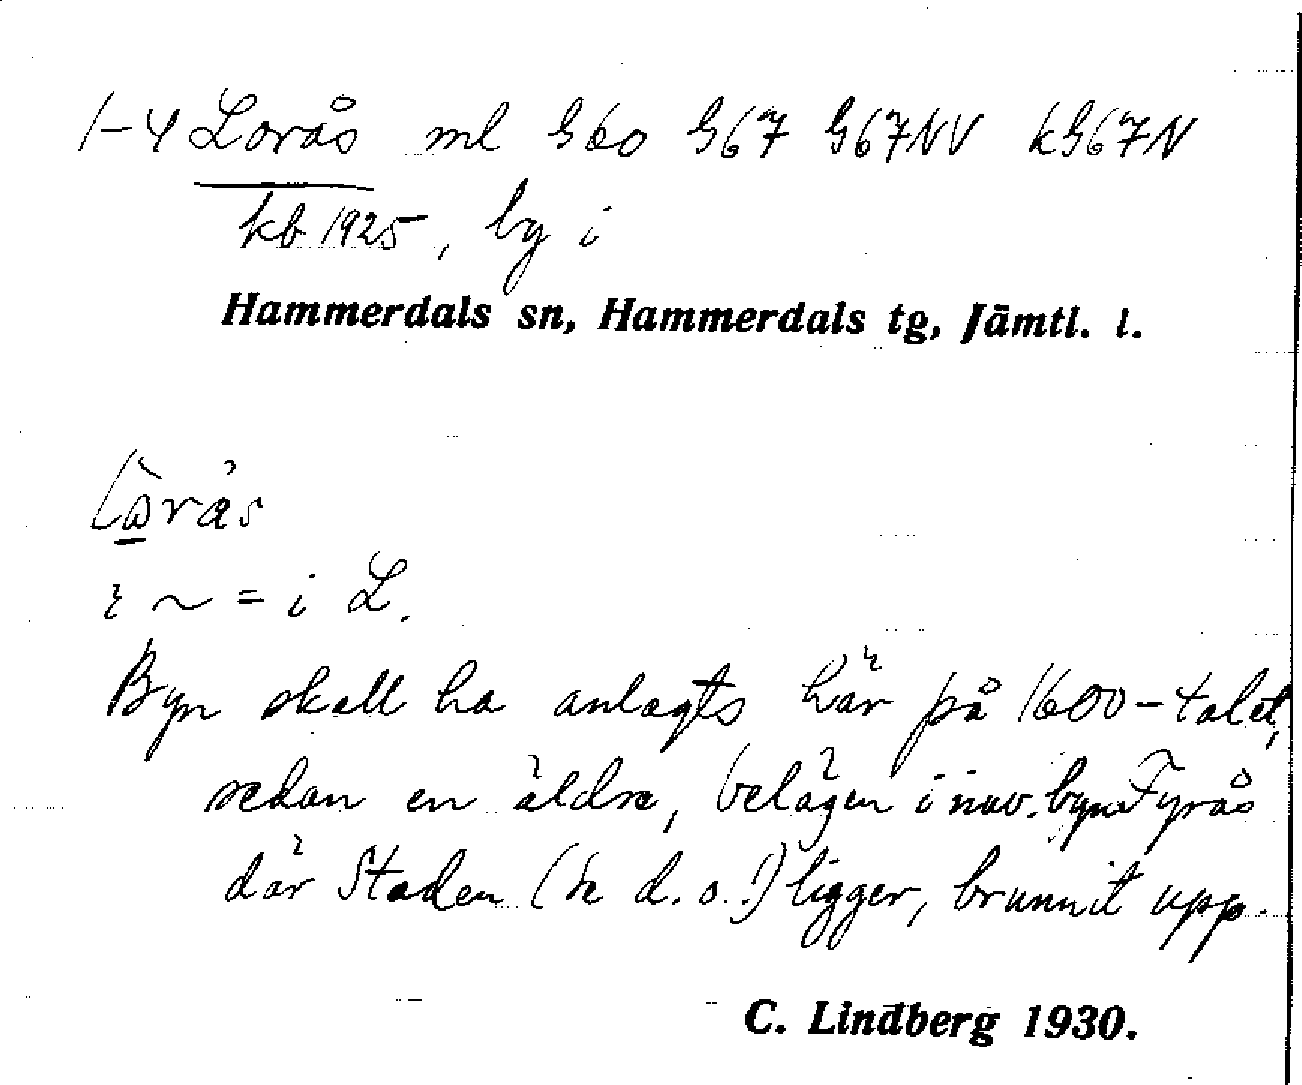 1-4 Lorås ml G60 G67 G67NV kG67N
kb 1925, by i
Hammerdals sn, Hammerdals tg, Jämtl. l.
~ = i L.
Byn skall ha anlagts här på 1600-talet,
sedan en äldre, belägen i nuv. byn Fyrås
där Staden (se d. o.!) ligger, brunnit upp.
C. Lindberg 1930.